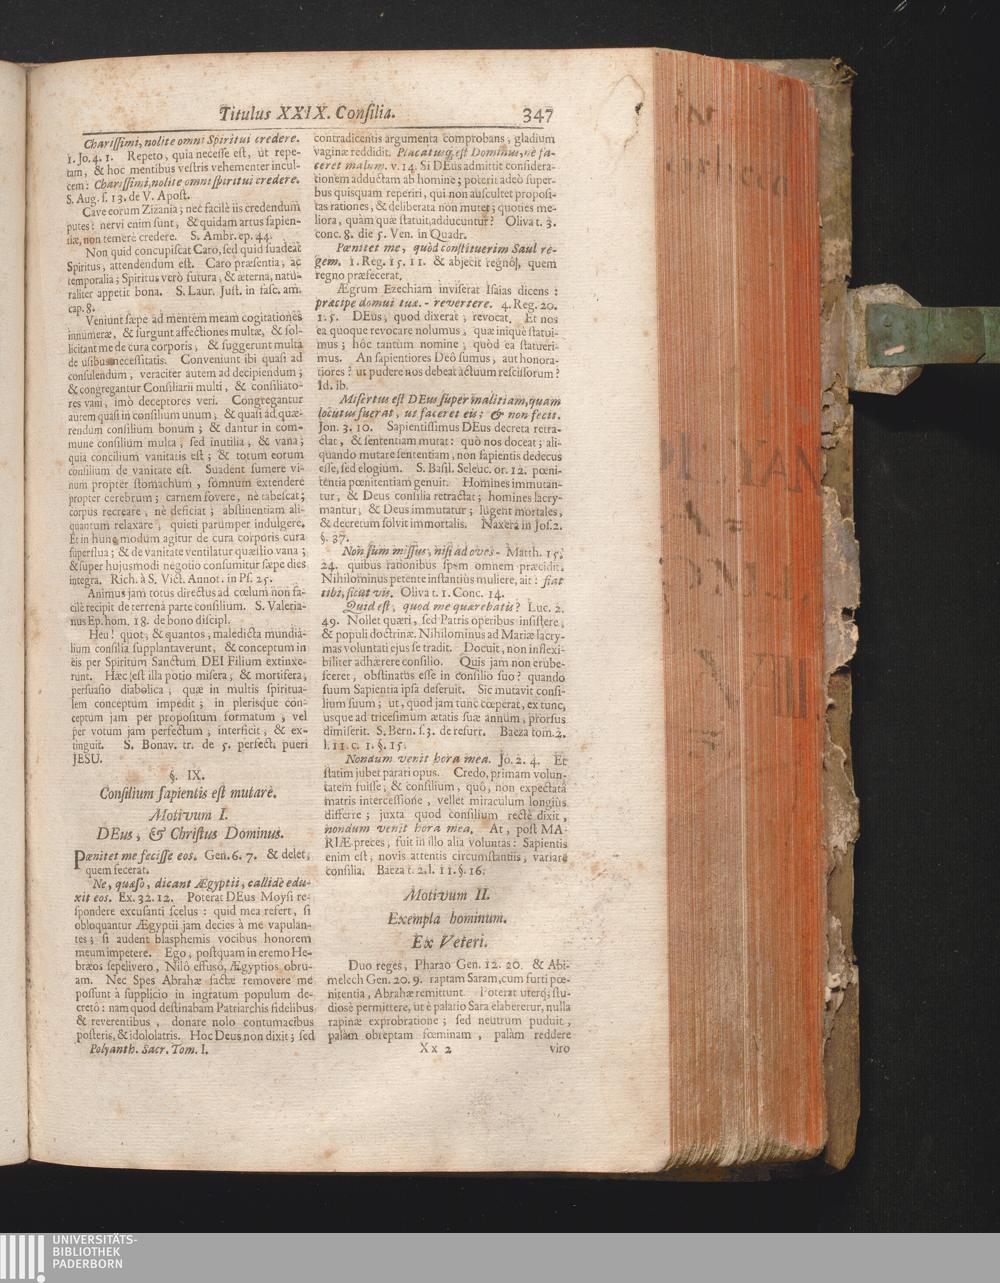 Titulus XXIX. Consilia. 347
Charissimi, nolite omni Spiritui credere.
1. Jo. 4. 1. Repeto, quia necesse est, ut repe-
tam, & hoc mentibus vestris vehementer incul-
cem: Charissimi, nolite omni spiritui credere.
S. Aug. s. 13. de V. Apost.
Cave eorum Zizania; nec facilè iis credendum
putes: nervi enim sunt, & quidam artus sapien-
tiæ, non temerè credere. S. Ambr. ep. 44.
Non quid concupiscat Caro, sed quid suadeat
Spiritus, attendendum est. Caro præsentia, ac
temporalia; Spiritus verò futura, & æterna, natu-
raliter appetit bona. S. Laur. Just. in fasc. am.
cap. 8.
Veniunt sæpe ad mentem meam cogitationes
innumeræ, & surgunt affectiones multæ, & sol-
licitant me de cura corporis, & suggerunt multa
de usibus necessitatis. Conveniunt ibi quasi ad
consulendum, veraciter autem ad decipiendum;
& congregantur Consiliarii multi, & consiliato-
res vani, imò deceptores veri. Congregantur
autem quasi in consilium unum, & quasi ad quæ-
rendum consilium bonum; & dantur in com-
mune consilium multa, sed inutilia, & vana;
quia concilium vanitatis est; & totum eorum
consilium de vanitate est. Suadent sumere vi-
num propter stomachum, somnum extendere
propter cerebrum; carnem fovere, nè tabescat;
corpus recreare, nè deficiat; abstinentiam ali-
quantum relaxare, quieti parumper indulgere.
Et in hunc modum agitur de cura corporis cura
superflua; & de vanitate ventilatur quæstio vana;
& super hujusmodi negotio consumitur sæpe dies
integra. Rich. à S. Vict. Annot. in Ps. 25.
Animus jam totus directus ad cœlum non fa-
cilè recipit de terrena parte consilium. S. Valeria-
nus Ep. hom. 18. de bono discipl.
Heu! quot, & quantos, maledicta mundia-
lium consilia supplantaverunt, & conceptum in
eis per Spiritum Sanctum DEI Filium extinxe-
runt. Hæc est illa potio misera, & mortifera,
persuasio diabolica, quæ in multis spiritua-
lem conceptum impedit; in plerisque con-
ceptum jam per propositum formatum, vel
per votum jam perfectum, interficit, & ex-
tinguit. S. Bonav. tr. de 5. perfect. pueri
JESU.
§. IX.
Consilium sapientis est mutare.
Motivum I.
DEus, & Christus Dominus.
Pœnitet me fecisse eos. Gen. 6. 7. & delet,
quem fecerat.
Ne, quæso, dicant Ægyptii, callidè edu-
xit eos. Ex. 32. 12. Poterat DEus Moysi re-
spondere excusanti scelus: quid mea refert, si
obloquantur Ægyptii jam decies à me vapulan-
tes; si audent blasphemis vocibus honorem
meum impetere. Ego, postquam in eremo He-
bræos sepelivero, Nilô effusô, Ægyptios obru-
am. Nec Spes Abrahæ factæ removere me
possunt à supplicio in ingratum populum de-
cretô: nam quod destinabam Patriarchis fidelibus
& reverentibus, donare nolo contumacibus
posteris, & idololatris. Hoc Deus non dixit; sed
Polyanth. Sacr. Tom. I.
contradicentis argumenta comprobans, gladium
vaginæ reddidit. Placatusq; est Dominus, nè fa-
ceret malum. v. 14. Si DEus admittit considera-
tionem adductam ab homine; poterit adeò super-
bus quisquam reperiri, qui non auscultet proposi-
tas rationes, & deliberata non mutet; quoties me-
liora, quàm quæ statuit, adducuntur? Oliva t. 3.
conc. 8. die 5. Ven. in Quadr.
Pœnitet me, quòd constituerim Saul re-
gem. 1. Reg. 15. 11. & abjecit regnô, quem
regno præfecerat.
Ægrum Ezechiam inviserat Isaias dicens:
præcipe domui tuæ. - revertere. 4. Reg. 20.
1. 5. DEus, quod dixerat, revocat. Et nos
ea quoque revocare nolumus, quæ iniquè statui-
mus; hôc tantùm nomine, quòd ea statueri-
mus. An sapientiores Deô sumus, aut honora-
tiores? ut pudere nos debeat actuum rescissorum?
Id. ib.
Misertus est DEus super malitiam, quam
locutus fuerat, ut faceret eis; & non fecit.
Jon. 3. 10. Sapientissimus DEus decreta retra-
ctat, & sententiam mutat: quò nos doceat; ali-
quando mutare sententiam, non sapientis dedecus
esse, sed elogium. S. Basil. Seleuc. or. 12. pœni-
tentia pœnitentiam genuit. Homines immutan-
tur, & Deus consilia retractat; homines lacry-
mantur, & Deus immutatur; lugent mortales,
& decretum solvit immortalis. Naxera in Jos. 2.
§. 37.
Non sum missus, nisi ad oves - Matth. 15.
24. quibus rationibus spem omnem præcidit.
Nihilominus petente instantius muliere, ait: fiat
tibi, sicut vis. Oliva t. 1. Conc. 14.
Quid est, quod me quærebatis? Luc. 2.
49. Nollet quæri, sed Patris operibus insistere,
& populi doctrinæ. Nihilominus ad Mariæ lacry-
mas voluntati ejus se tradit. Docuit, non inflexi-
biliter adhærere consilio. Quis jam non erube-
sceret, obstinatus esse in consilio suo? quando
suum Sapientia ipsa deseruit. Sic mutavit consi-
lium suum; ut, quod jam tunc cœperat, ex tunc,
usque ad tricesimum ætatis suæ annum, prorsus
dimiserit. S. Bern. s. 3. de resurr. Baeza tom. 2.
l. 11. c. 1. §. 15.
Nondum venit hora mea. Jo. 2. 4. Et
statim jubet parari opus. Credo, primam volun-
tatem fuisse, & consilium, quô, non expectatâ
matris intercessione, vellet miraculum longiùs
differre; juxta quod consilium rectè dixit,
nondum venit hora mea. At, post MA-
RIÆ preces, fuit in illo alia voluntas: Sapientis
enim est, novis attentis circumstantiis, variare
consilia. Baeza t. 2. l. 11. §. 16.
Motivum II.
Exempla hominum.
Ex Veteri.
Duo reges, Pharao Gen. 12. 20. & Abi-
melech Gen. 20. 9. raptam Saram, cum furti pœ-
nitentia, Abrahæ remittunt. Poterat uterq; stu-
diosè permittere, ut è palatio Sara elaberetur, nulla
rapinæ exprobratione; sed neutrum puduit,
palàm obreptam fœminam, palàm reddere
Xx 2 viro
UNIVERSITÄTS-
BIBLIOTHEK
PADERBORN